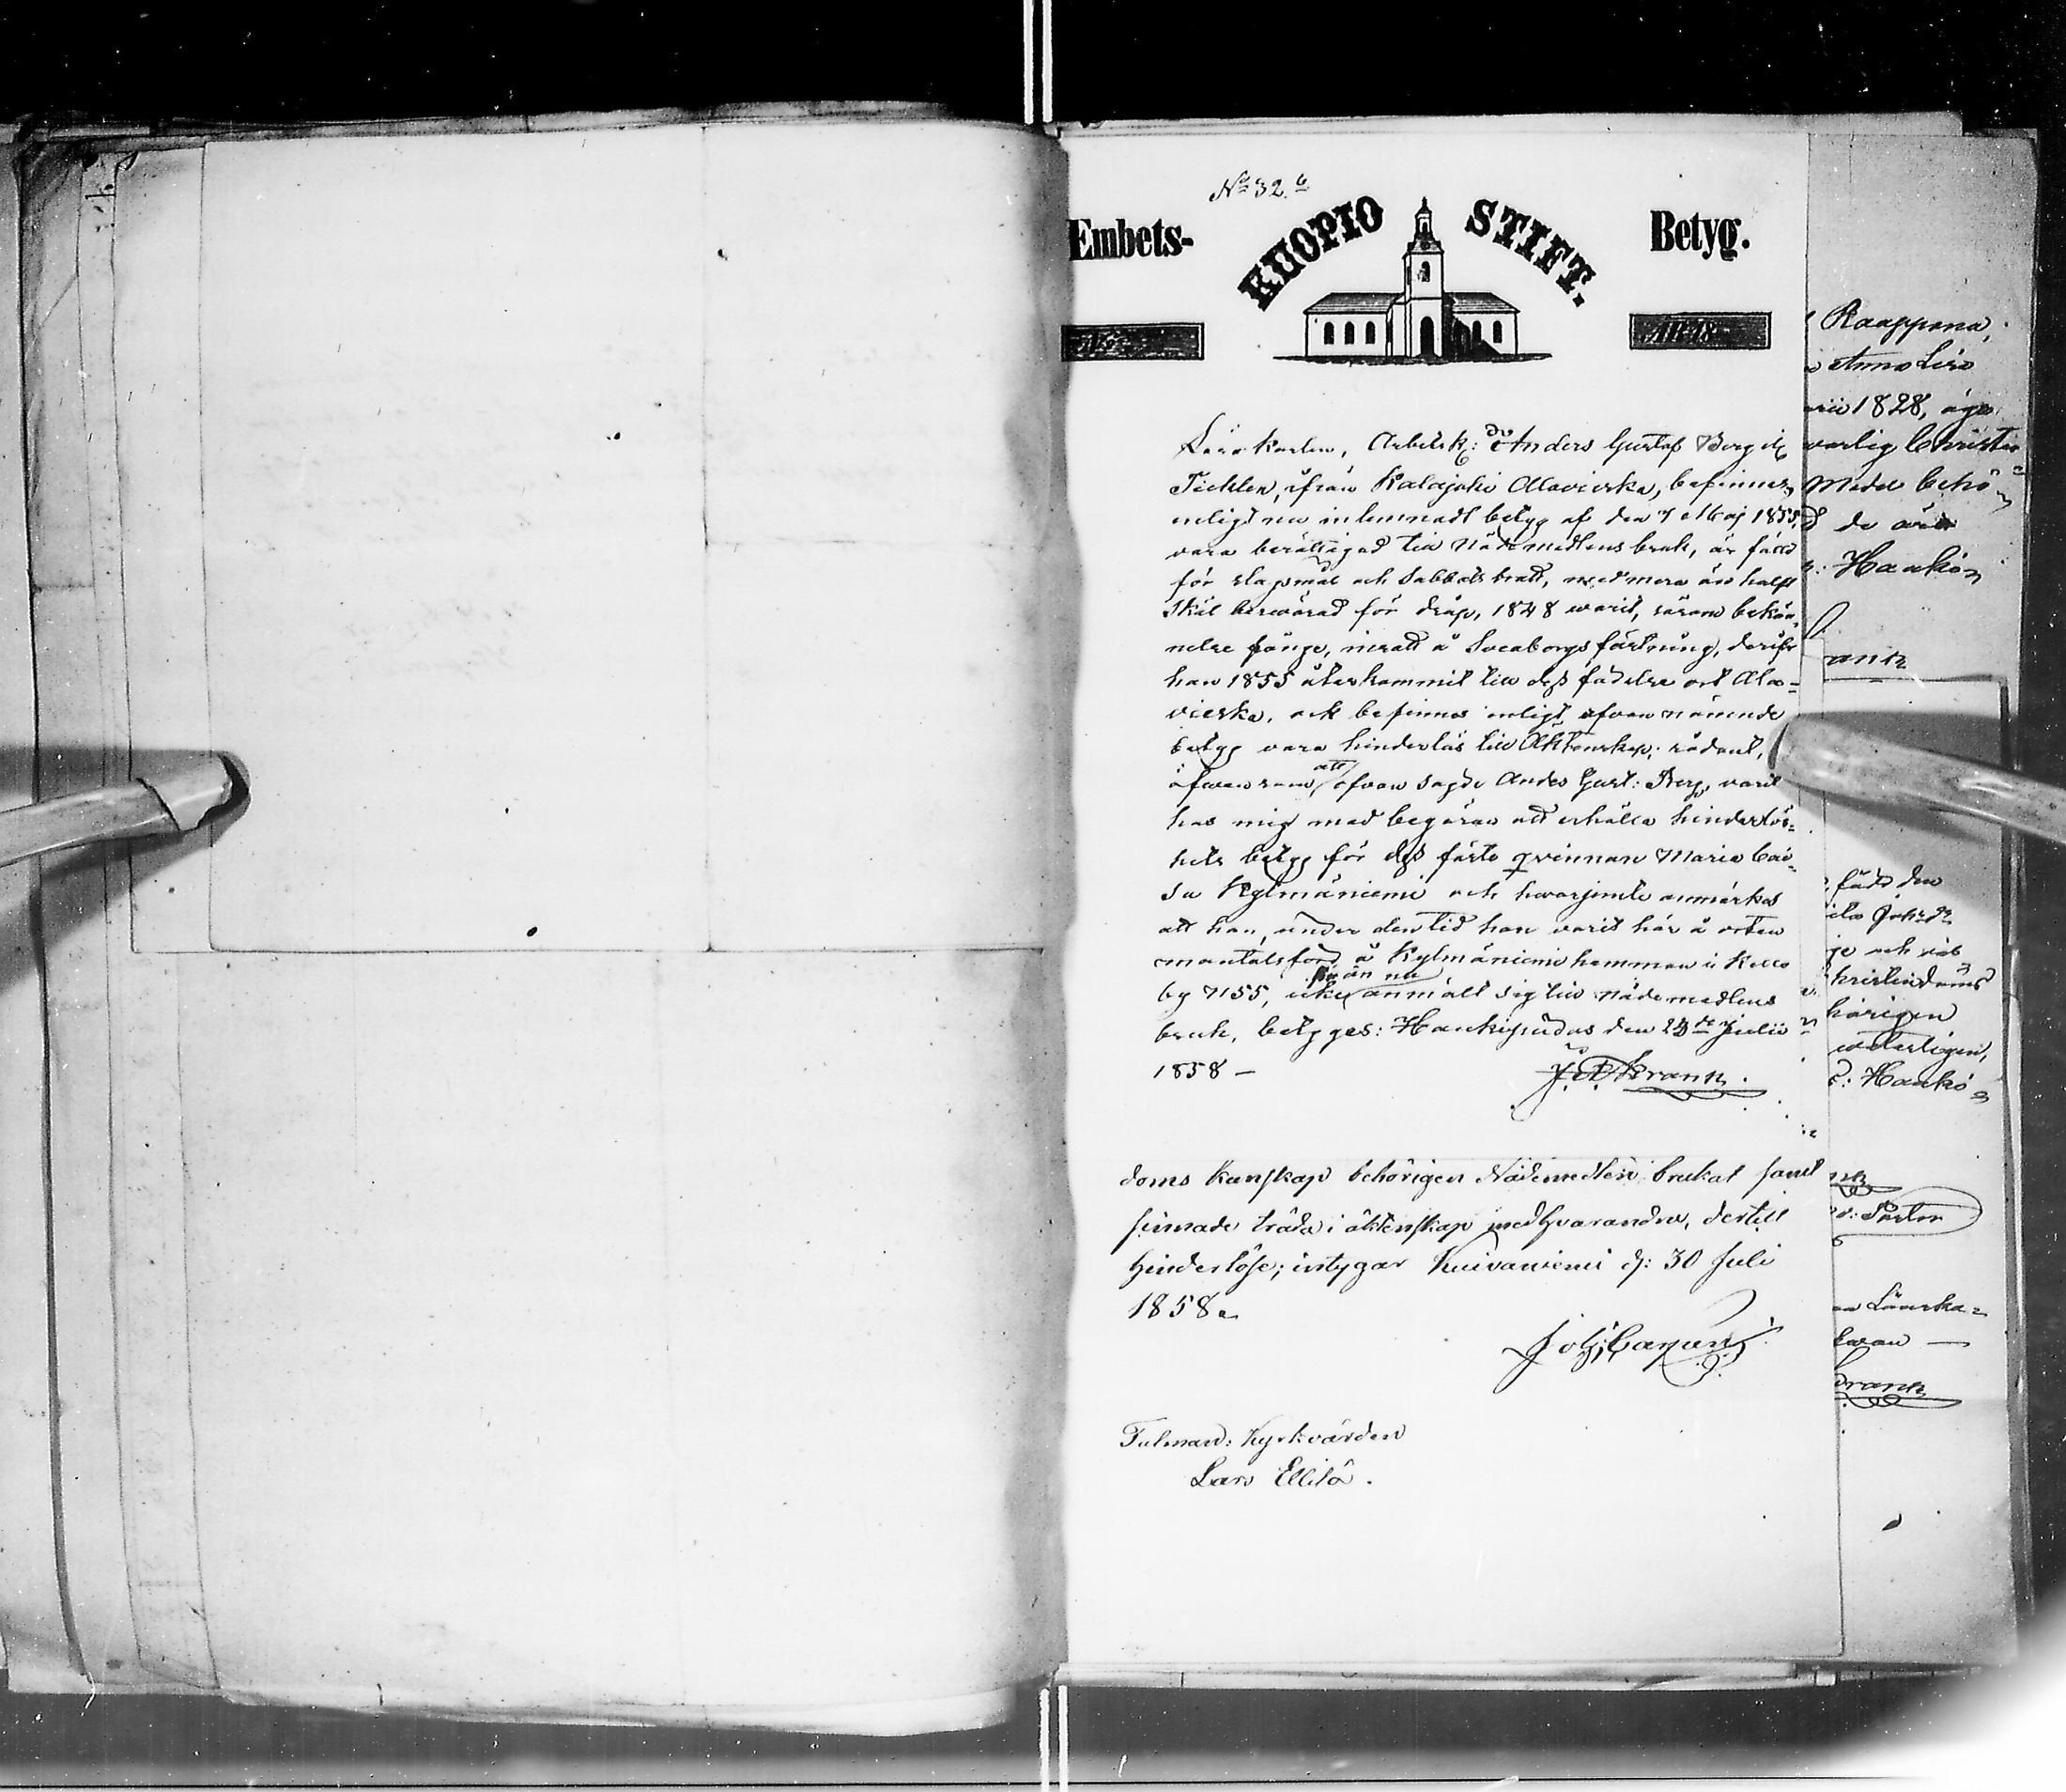 No 32.6
Embets- KUOPIO STIFT. Betyg.
No AR 18
Lösa karlen, Arbetsk: Anders Gustaf Berg
ifrån Kalajoki Alavieska, befinnes
enligt nu inlemnadt betyg af den 7 Maj 1855,
vara berättigad till Nådemedlens bruk, är fälld
för slagsmål och Sabbatsbrott, med mera än half
skäl besvärad för dråp, 1848 warit, såsom bekän-
nelse fånge, insatt å Sveaborgs fästning, derifr
han 1855 återkommit till dess födelse ort Ala-
vieska, och befinnes enligt ofvan nämnde
betyg vara hinderlös till Äktenskap; sådant,
äfwensom att ofvan sagde Anders Gust: Berg, varit
hos mig med begäran att erhålla hinderlös-
hets betyg för dess fäste qvinnan Maria Cai-
sa Kylmäniemi och hvarjemte anmärkes
att han, under den tid han varit här å orten
mantalsförd å Kylmäniemi hemman i Kello
by N 55, icke ännu anmält sig till nådemedlens
bruk, betygas: Haukipudas den 23de Julii
1858 –
Brann.
doms kunskap behörigen Nådemedlen brukat samt
sinnade träda i äktenskap med hvarandra, dertill
hinderlöse; intygar Kuivaniemi d: 30 Juli
1858.
Joh: Cajan
Talman: Kyrkvärden
Lars Ellilä.
Raappana,
Anna Lisa
1828, äga
varlig Christen
Medel behö
de äro
Haukip
ann
född den
och
hristendoms
hörigen
witterligen,
d: Haukip
Pastor
Länska-
Brann